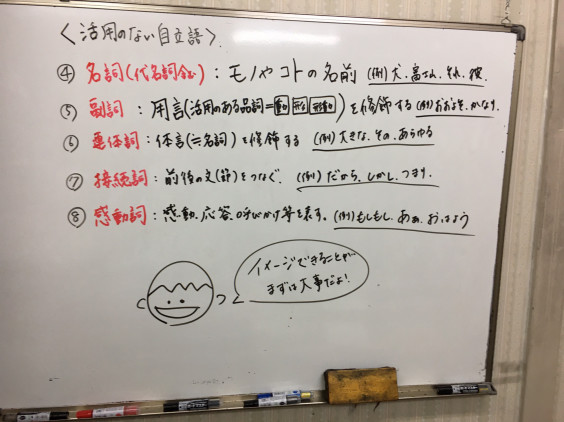 〈活用のない自立語〉
④ 名詞(代名詞含む):モノやコトの名前 (例)犬、富士山、それ、彼、
⑤ 副詞:用言(活用のある品詞=動 形 形動)を修飾する (例)おおよそ、かなり、
⑥ 連体詞:体言(≒名詞)を修飾する (例)大きな、その、あらゆる
⑦ 接続詞:前後の文(節)をつなぐ、 (例)だから、しかし、つまり、
⑧ 感動詞:感動、応答、呼びかけ等を表す。(例)もしもし、あぁ、おはよう
イメージできることが
まずは大事だよ!